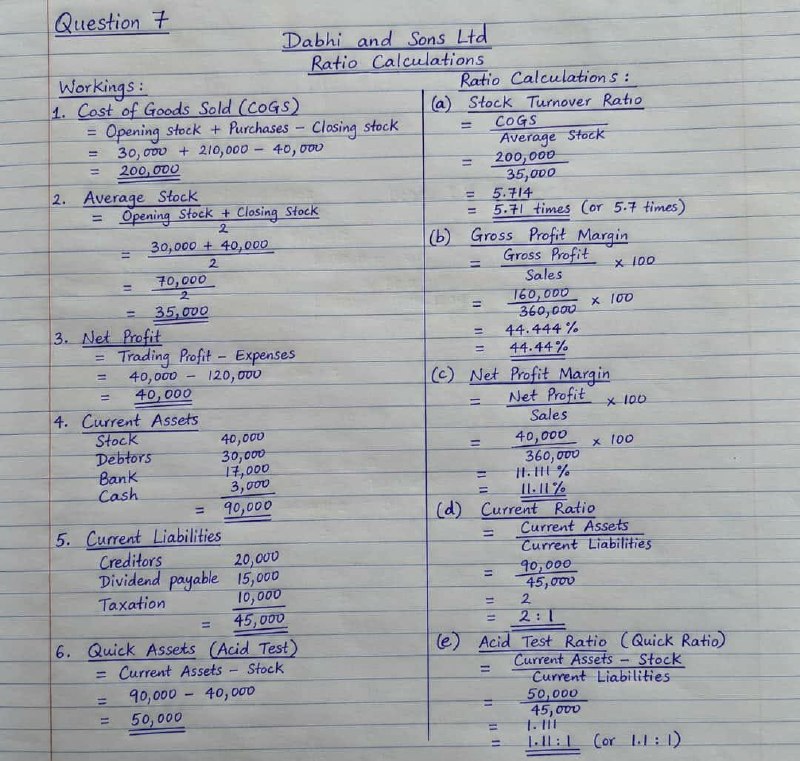 Question 7
Dabhi and Sons Ltd
Ratio Calculations
Workings:
1. Cost of Goods Sold (COGS)
= Opening stock + Purchases - Closing stock
= 30,000 + 210,000 - 40,000
= 200,000
2. Average Stock
= Opening Stock + Closing Stock
2
= 30,000 + 40,000
2
= 70,000
2
= 35,000
3. Net Profit
= Trading Profit - Expenses
= 40,000 - 120,000
= 40,000
4. Current Assets
Stock 40,000
Debtors 30,000
Bank 17,000
Cash 3,000
= 90,000
5. Current Liabilities
Creditors 20,000
Dividend payable 15,000
Taxation 10,000
= 45,000
6. Quick Assets (Acid Test)
= Current Assets - Stock
= 90,000 - 40,000
= 50,000
Ratio Calculations:
(a) Stock Turnover Ratio
= COGS
Average Stock
= 200,000
35,000
= 5.714
= 5.71 times (or 5.7 times)
(b) Gross Profit Margin
= Gross Profit × 100
Sales
= 160,000 × 100
360,000
= 44.444%
= 44.44%
(c) Net Profit Margin
= Net Profit × 100
Sales
= 40,000 × 100
360,000
= 11.111%
= 11.11%
(d) Current Ratio
= Current Assets
Current Liabilities
= 90,000
45,000
= 2
= 2:1
(e) Acid Test Ratio (Quick Ratio)
= Current Assets - Stock
Current Liabilities
= 50,000
45,000
= 1.111
= 1.11:1 (or 1.1:1)